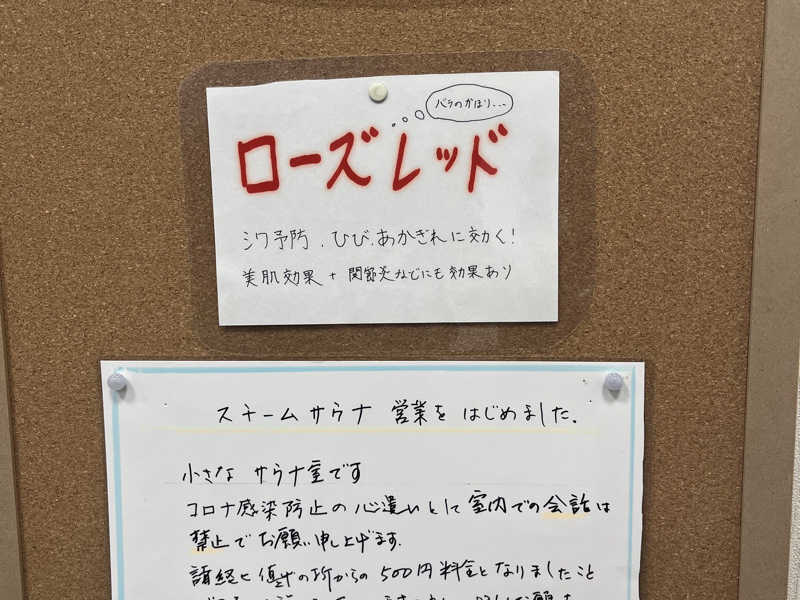 バラのかほり...
ローズレッド
シワ予防、ひび、あかぎれに効く!
美肌効果 + 関節炎などにも効果あり
スチームサウナ 営業を はじめました。
小さな サウナ室です
コロナ感染防止の心遣いとして室内での会話は
禁止でお願い申し上げます。
諸経ヒ 値上の折からの 500円料金となりましたこと